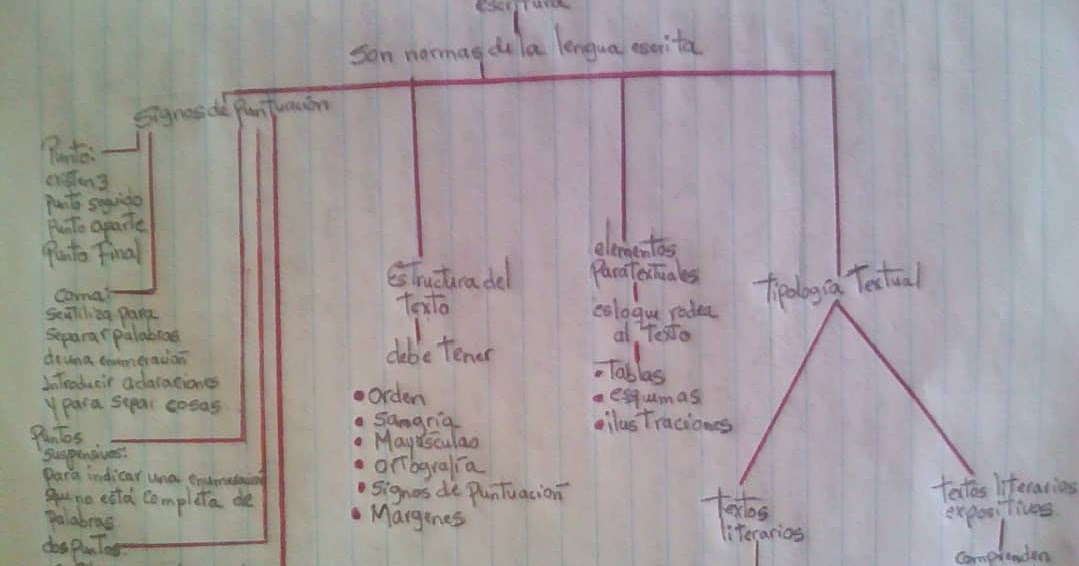 escritura
Son normas de la lengua escrita
Signos de Puntuación
Punto:
existen 3
Punto seguido
Punto aparte
Punto Final
Coma:
Se utiliza para
Separar palabras
de una enumeración
introducir aclaraciones
y para separ cosas
Puntos
Suspensivos:
Para indicar una enumeración
que no está completa de
palabras
dos puntos:
Estructura del
Texto
debe Tener
• Orden
• Sangría
• Mayúsculas
• Ortografía
• Signos de Puntuación
• Margenes
elementos
ParaTextuales
es lo que rodea
al Texto
• Tablas
• esquemas
• ilustraciones
Tipología Textual
Textos
literarios
textos literarios
expositivos
Comprenden